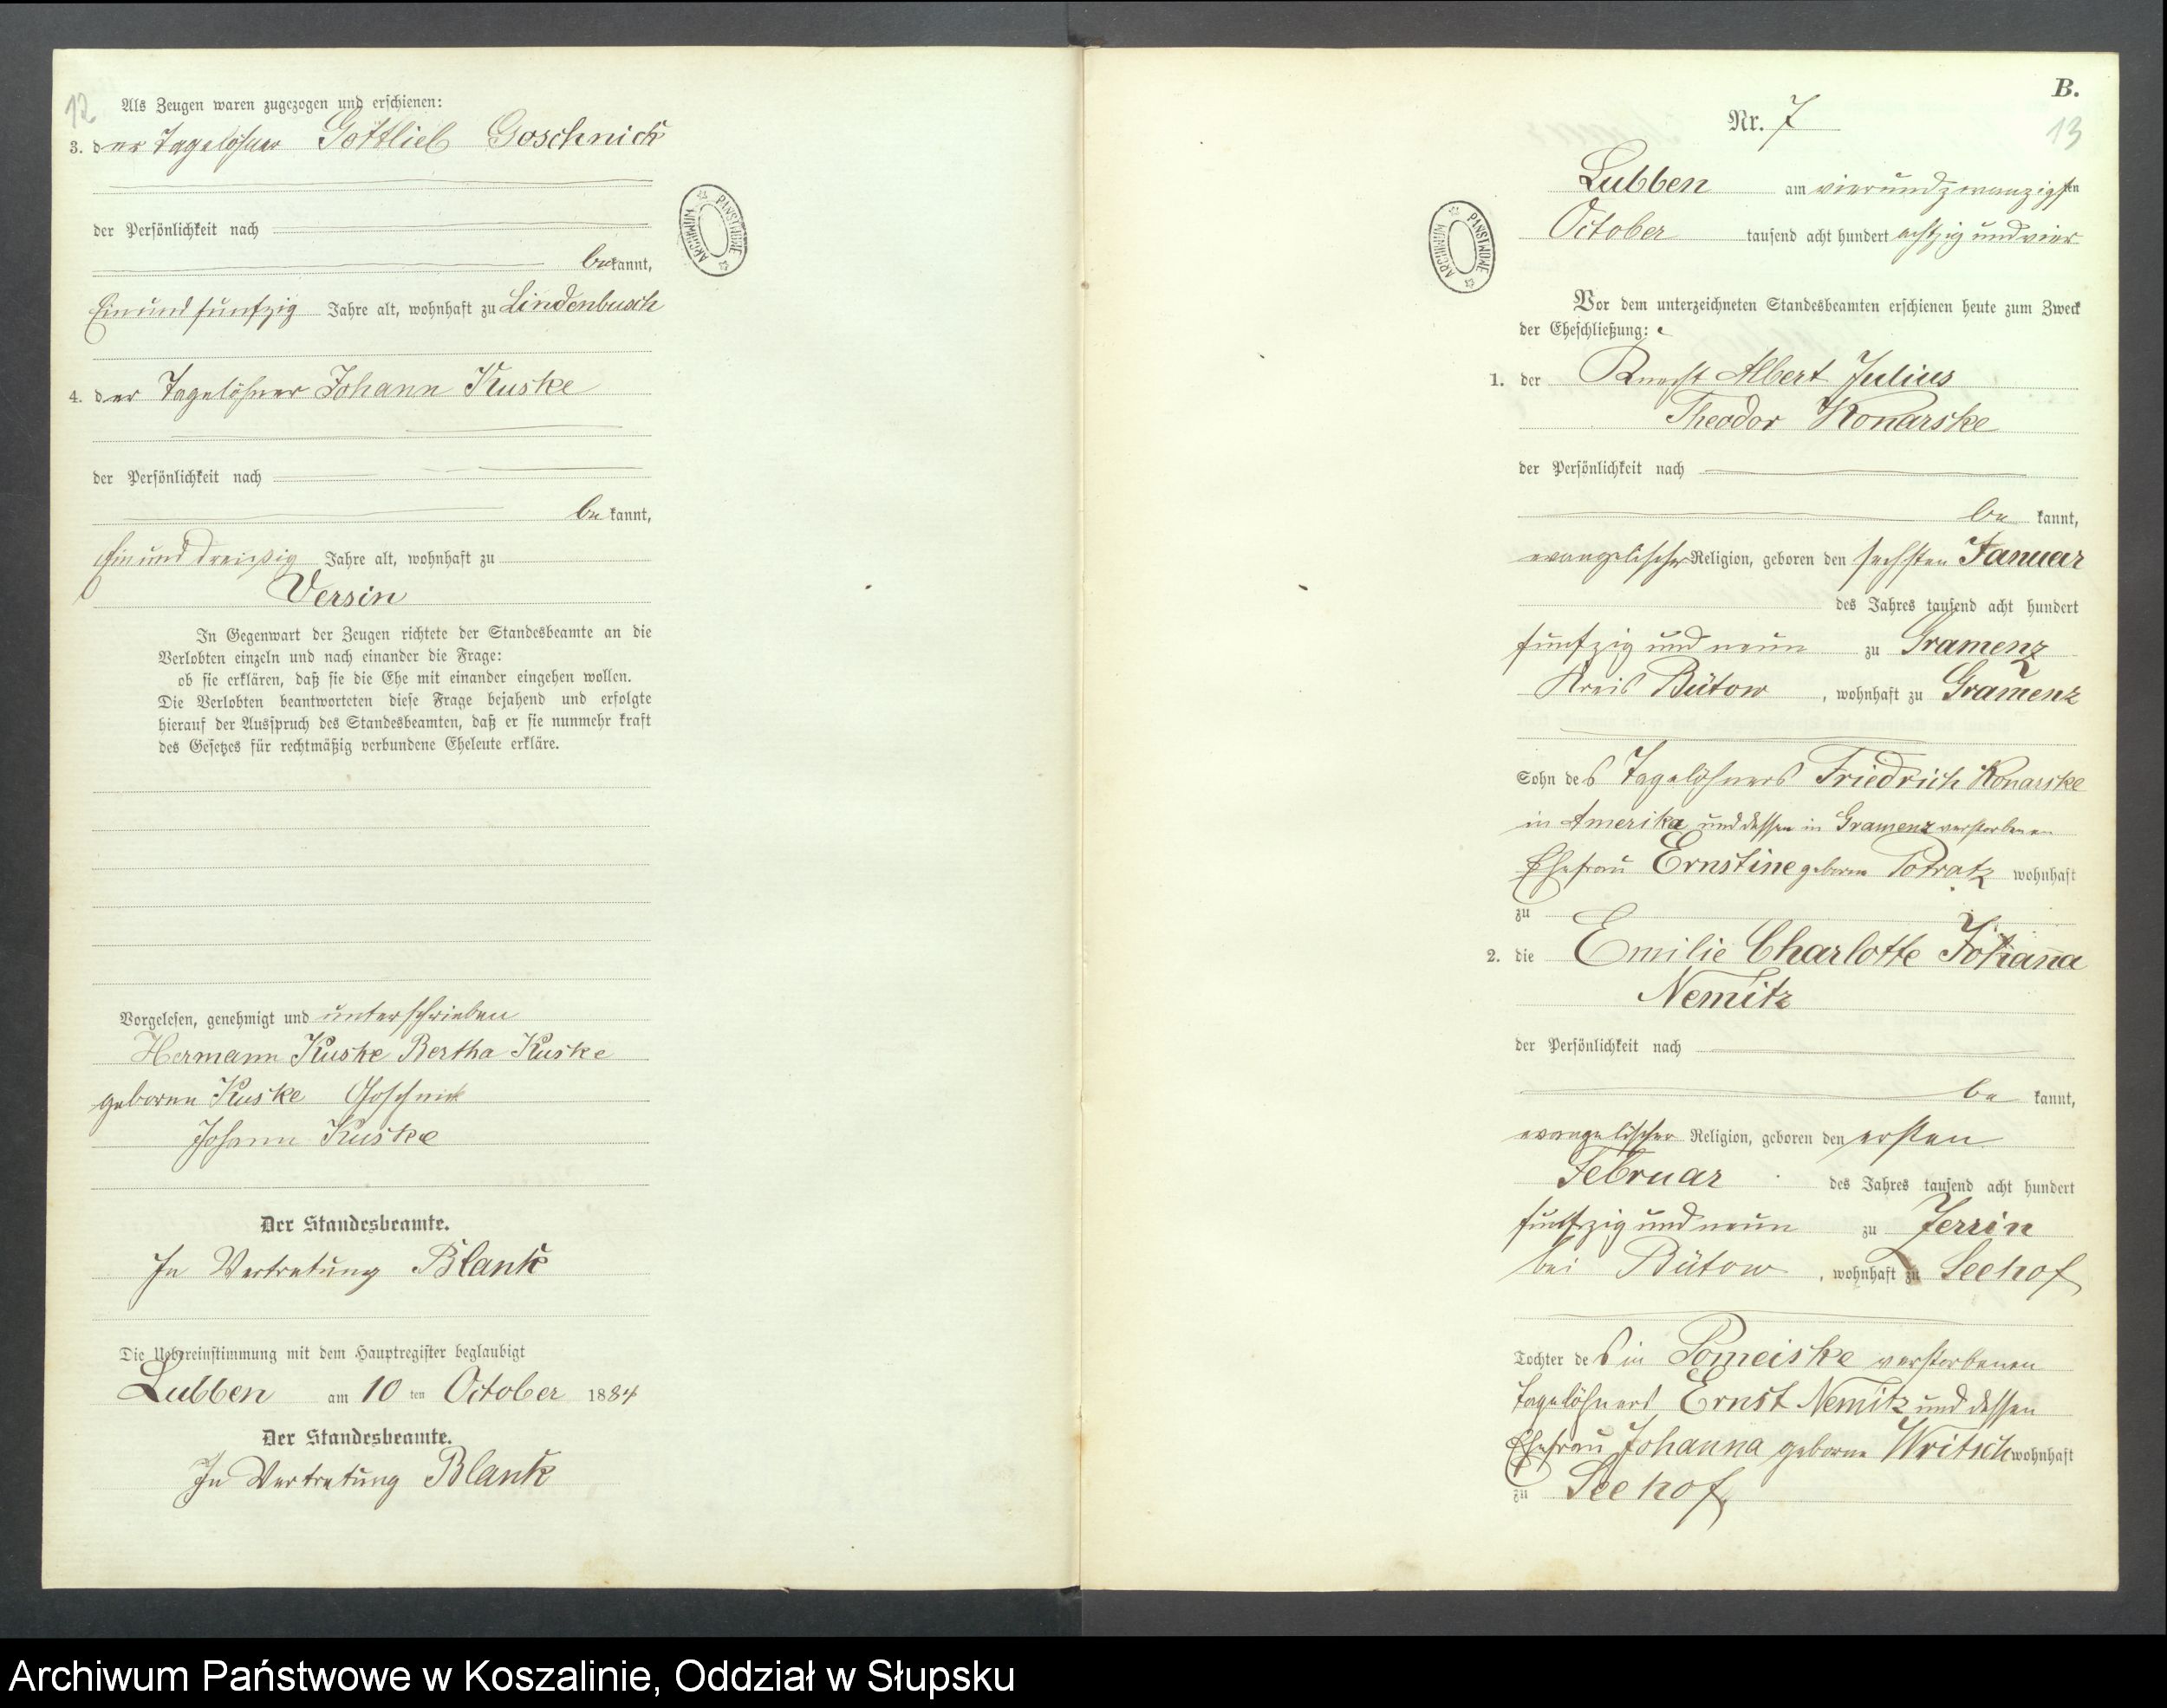 12
Als Zeugen waren zugezogen und erschienen:
3. der Tagelöhner Gottlieb Goschnick
der Persönlichkeit nach
bekannt,
Ein und funfzig Jahre alt, wohnhaft zu Lindenbusch
4. der Tagelöhner Johann Kuske
der Persönlichkeit nach
be kannt,
Ein und dreißig Jahre alt, wohnhaft zu
Versin
In Gegenwart der Zeugen richtete der Standesbeamte an die
Verlobten einzeln und nach einander die Frage:
ob sie erklären, daß sie die Ehe mit einander eingehen wollen.
Die Verlobten beantworteten diese Frage bejahend und erfolgte
hierauf der Ausspruch des Standesbeamten, daß er sie nunmehr kraft
des Gesetzes für rechtmäßig verbundene Eheleute erkläre.
Vorgelesen, genehmigt und unterschrieben
Hermann Kuske Bertha Kuske
geborne Kuske Goschnick
Johann Kuske
Der Standesbeamte.
In Vertretung Blank
Die Uebereinstimmung mit dem Hauptregister beglaubigt
Lubben am 10 ten October 1884
Der Standesbeamte.
In Vertretung Blank
ARCHIWUM PAŃSTWOWE
B.
Nr. 7
13
Lubben am vierundzwanzigsten
October tausend acht hundert achtzig und vier
ARCHIWUM PAŃSTWOWE
Vor dem unterzeichneten Standesbeamten erschienen heute zum Zweck
der Eheschließung:
1. der Knecht Albert Julius
Theodor Konarske
der Persönlichkeit nach
be kannt,
evangelischer Religion, geboren den sechsten Januar
des Jahres tausend acht hundert
funfzig und neun zu Gramenz
Kreis Bütow, wohnhaft zu Gramenz
Sohn des Tagelöhners Friedrich Konarske
in Amerika und dessen in Gramenz verstorbenen
Ehefrau Ernstine geboren Potratz wohnhaft
zu
2. die Emilie Charlotte Johanna
Nemitz
der Persönlichkeit nach
be kannt,
evangelischer Religion, geboren den ersten
Februar des Jahres tausend acht hundert
funfzig und neun zu Jerrin
bei Bütow, wohnhaft zu Seehof
Tochter des in Pomeiske verstorbenen
Tagelöhners Ernst Nemitz und dessen
Ehefrau Johanna geborne Writsch wohnhaft
zu Seehof
Archiwum Państwowe w Koszalinie, Oddział w Słupsku